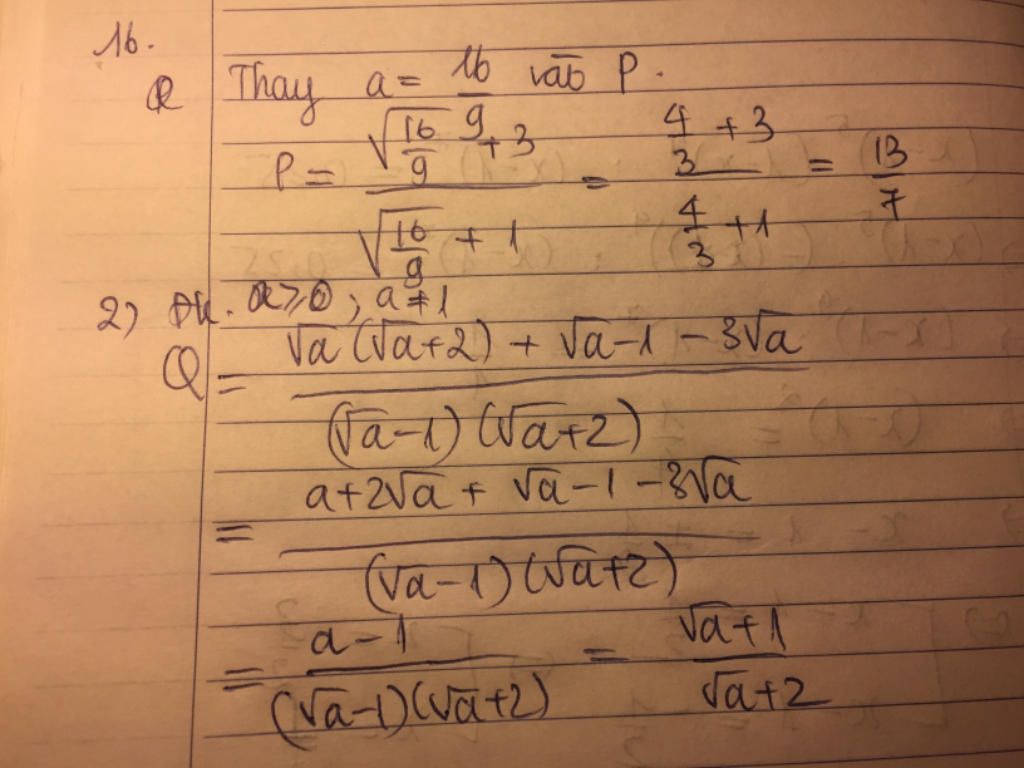 16.
Thay a = 16/9 vào P.
P = (√(16/9) + 3)/(√(16/9) + 1) = (4/3 + 3)/(4/3 + 1) = 13/7
2) ĐK. a ≥ 0 ; a ≠ 1
Q = (√a (√a+2) + √a - 1 - 3√a)/((√a-1)(√a+2))
= (a+2√a + √a - 1 - 3√a)/((√a-1)(√a+2))
= (a-1)/((√a-1)(√a+2)) = (√a+1)/(√a+2)